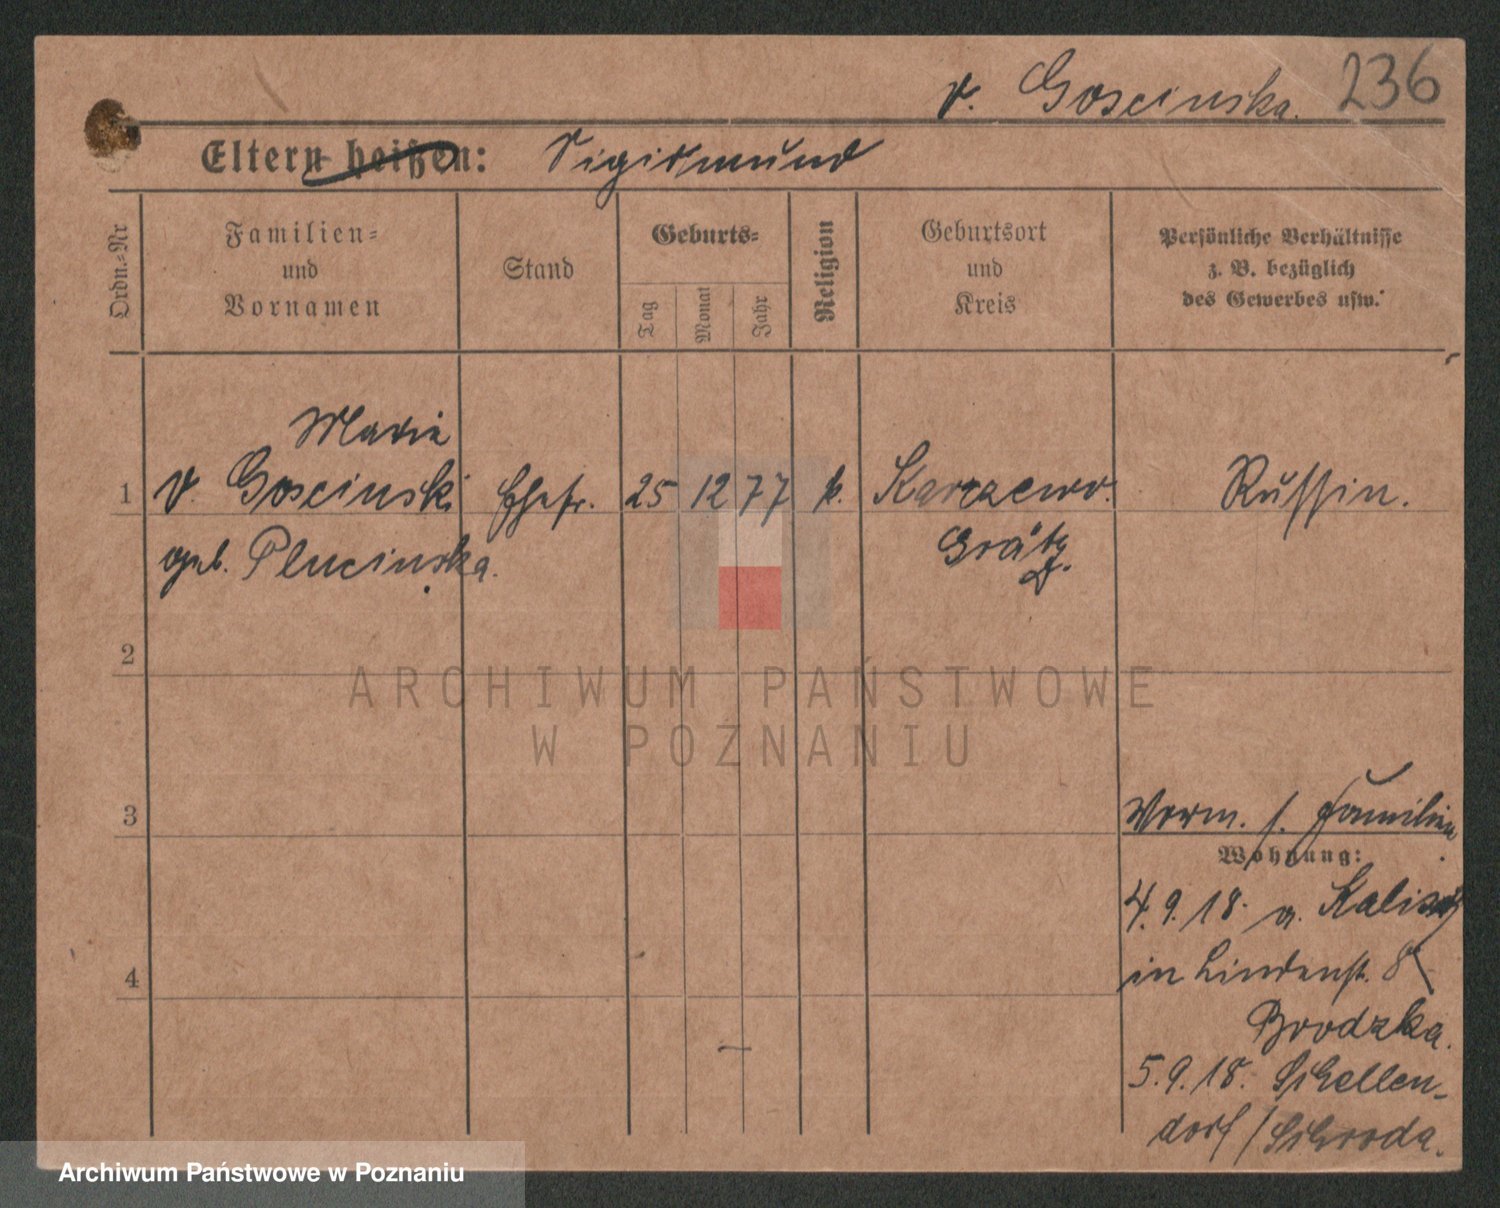 v. Goscinska. 236
Eltern heißen: Sigismund
Ordn.=Nr
Familien=
und
Vornamen
Stand
Geburts=
Tag
Monat
Jahr
Religion
Geburtsort
und
Kreis
Persönliche Verhältnisse
z. B. bezüglich
des Gewerbes usw.
Marie
1 v. Goscinski Ehefr. 25 12 77 k. Karczewo. Russin.
geb. Plucinska. Grätz
2
3
4
Verm. s. Familien
Wohnung:
4.9.18. a. Kalisch
in Lindenst. 8
Brodzka.
5.9.18. Schellen-
dorf / Schroda.
ARCHIWUM PAŃSTWOWE
W POZNANIU
Archiwum Państwowe w Poznaniu